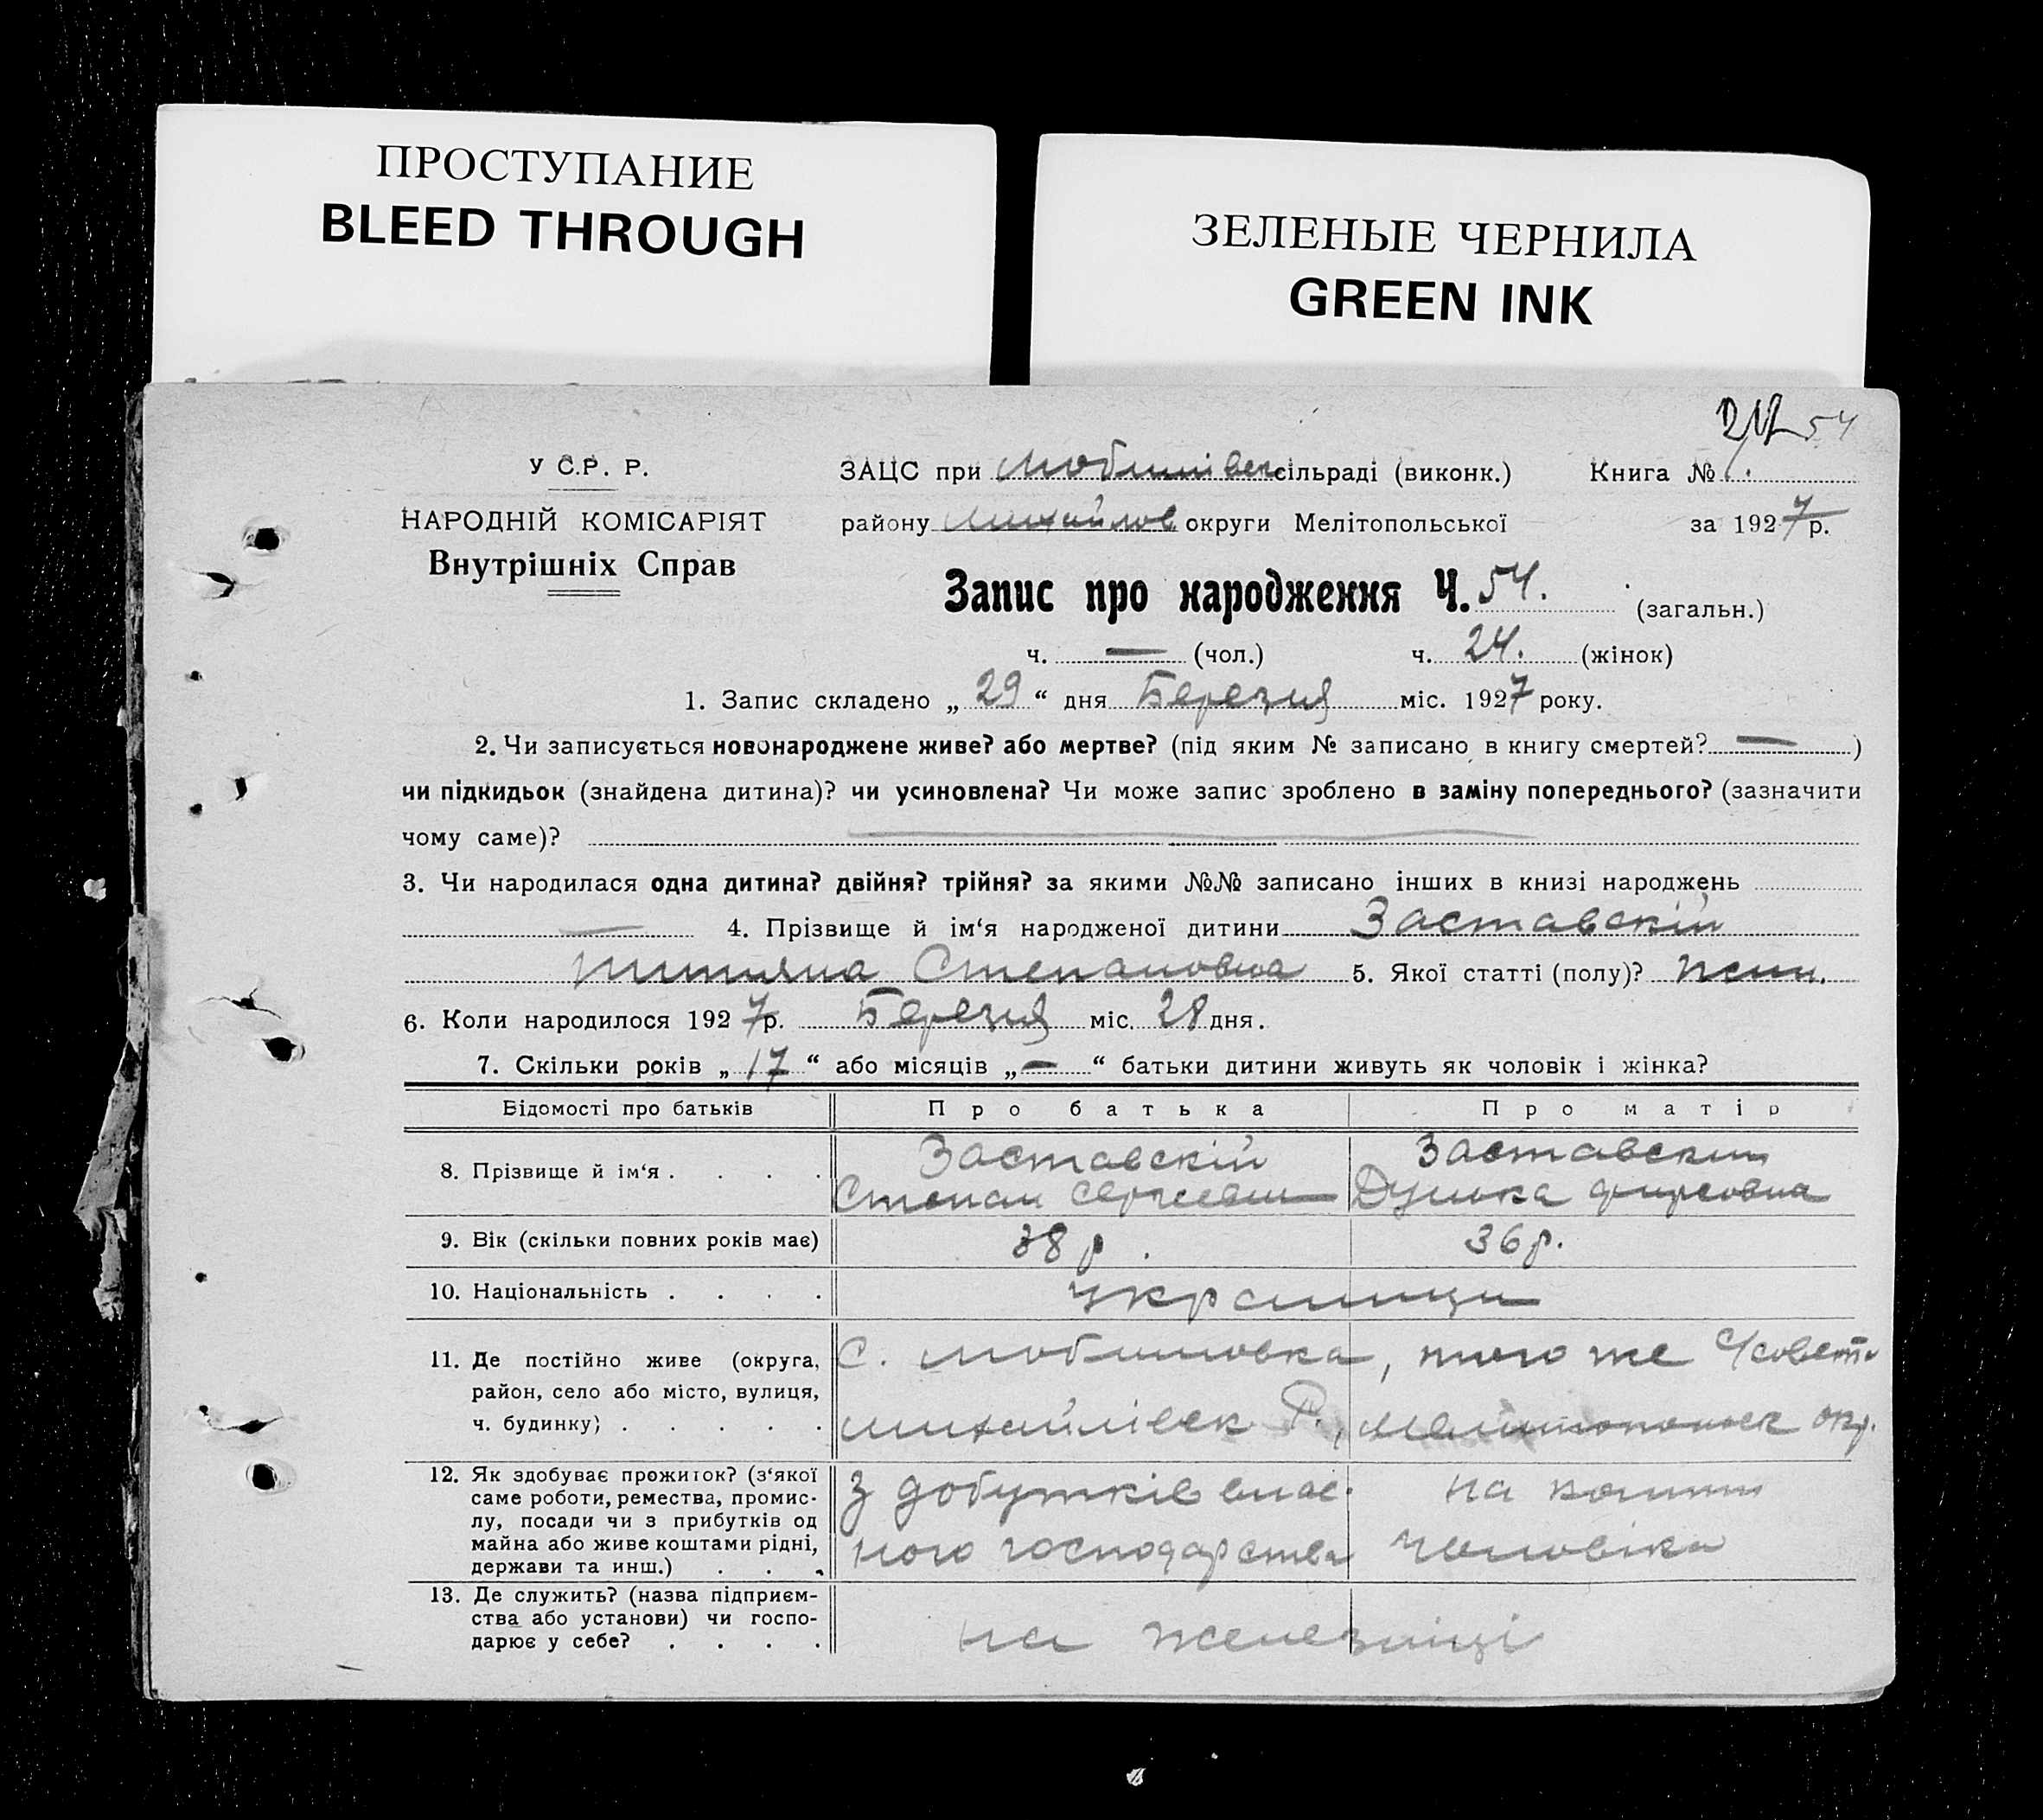 ПРОСТУПАНИЕ
BLEED THROUGH
ЗЕЛЕНЫЕ ЧЕРНИЛА
GREEN INK
54
У С.Р. Р.
НАРОДНІЙ КОМІСАРІЯТ
Внутрішніх Справ
ЗАЦС при сільраді (виконк.) Книга №
району Михайлов округи Мелітопольської за 1927 р.
Запис про народження Ч. 54. (загальн.)
ч. — (чол.) ч. 24. (жінок)
1. Запис складено „ 29 “ дня Березня міс. 1927 року.
2. Чи записується новонароджене живе? або мертве? (під яким № записано в книгу смертей? — )
чи підкидьок (знайдена дитина)? чи усиновлена? Чи може запис зроблено в заміну попереднього? (зазначити
чому саме)?
3. Чи народилася одна дитина? двійня? трійня? за якими №№ записано інших в книзі народжень
— 4. Прізвище й ім‘я народженої дитини Заставскій
Степановна 5. Якої статті (полу)? жін.
6. Коли народилося 1927 р. Березня міс. 28 дня.
7. Скільки років „ 17 “ або місяців „ — “ батьки дитини живуть як чоловік і жінка?
Відомості про батьків Про батька Про матір
8. Прізвище й ім‘я . . . . Заставскій Заставский
Степан Сергеевич Дунька Фирсовна
9. Вік (скільки повних років має) 38 р. 36 р.
10. Національність . . . . Українци
11. Де постійно живе (округа, район, село або місто, вулиця, ч. будинку) . . . . .
С. , того же
Михайлівск Р., Мелитопольск окр.
12. Як здобуває прожиток? (з‘якої саме роботи, ремества, промислу, посади чи з прибутків од майна або живе коштами рідні, держави та инш.) . . .
З добутків влас- на кошти
ного господарства чоловіка
13. Де служить? (назва підприємства або установи) чи господарює у себе? . . . .
на железниці